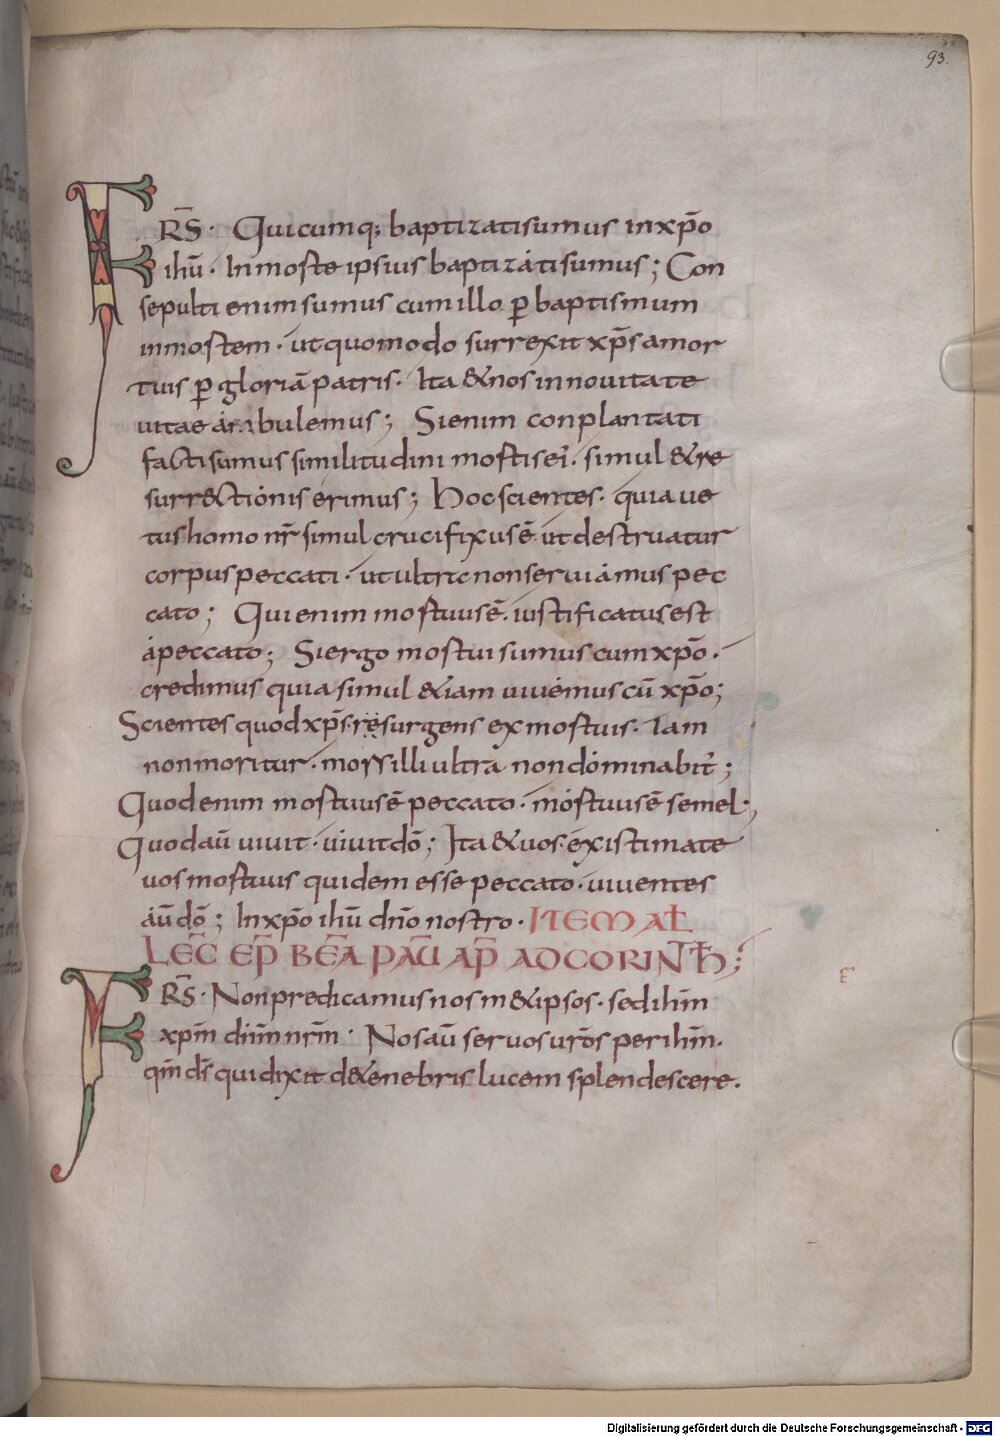 93.
FRS̄· Quicumq; baptizatisumus inxp̄o
ihū· Inmorte ipsius baptizátisumus; Con
sepulti enim sumus cum illo ꝑ baptismum
inmortem· ut quomodo surrexit xp̄s amor
tuis ꝑ gloriā patris· Ita &nos innouitate
uitae ambulemus; Sienim conplantati
factisumus similitudini mortisei᾿· simul &re
surr&ctiónis érimus; Hocscientes· quia ue
tushomo nr̄ simul crucifixusē· ut destruatur
corpuspeccati· ut ultra nonseruiámus pec
cato; Quienim mortuusē· iustificatusest
ápeccato; Siergo mortui sumus cumxp̄o·
credimus quia simul &iam uiuémus cū xp̄o;
Scientes quod xp̄s· resurgens exmortuis· Iam
nonmoritur· morsilli ultra nondóminabit᾿;
Quodenim mortuusē peccato· mórtuusē semel;
Quodaū uiuit· uíuitdō; Ita &uos·existimate
uosmortuos quidem esse peccato· uiuentes
aū dō; Inxp̄o ihū dn̄o nostro· ITEM AŁ
LEC̄ EP̄ BĒA PAŪ AP̄ ADCORINTH̄;
FRS̄· Nonpredicamus nosm&ipsos· sedihm̄
xpm̄ dn̄m nrm̄· Nosaū seruosur̄os perihm̄·
qm̄ ds̄ quidixit d&enebris lucem splendescere·
Digitalisierung gefördert durch die Deutsche Forschungsgemeinschaft - DFG